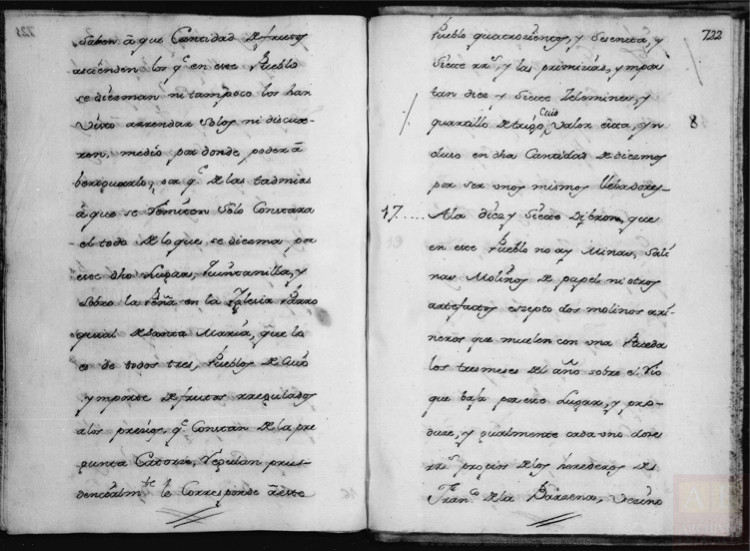 Saben â que Cantidad de frutos
ascienden los q.e en este Pueblo
se diezman ni tampoco los han
visto arrendar solos ni discur-
ren, medio por donde poder â
beriguarlo, por q.e de las tadmias
â que se remiten solo Constara
el todo de lo que se diezma por
este dho Lugar, Quintanilla, y
Sobre la Peña en la Iglesia Parro
quial de Santa Maria, que lo
es de todos tres, Pueblos de Cuio
ymporte de frutos rregulados
alos precios q.e Constan de la pre
gunta Catorze, rregulan pruf-
dencialm.te le Corresponde â este
722
Pueblo quatrozientos, y Sesenta, y
Siete rr.s y las primizias, ympor
tan diez y Siete Zelemines, y
quartillo de trigo, Cuio Valor esta, yn
cluso en dha Cantidad de diezmos
por ser unos mismos llebadores
8
17.... A la diez y Siete Dijeron, que
en este Pueblo no ay Minas, Sali
nas Molinos de papel ni otros
artefactos exzepto dos molinos arri
neros que muelen con una Rueda
los tres meses del año sobre el rio
que baja por este Lugar, y pro-
duze, y gualmente cada uno doze
rr.s propios de los herederos de
Fran.co de la Barzena, Vezino